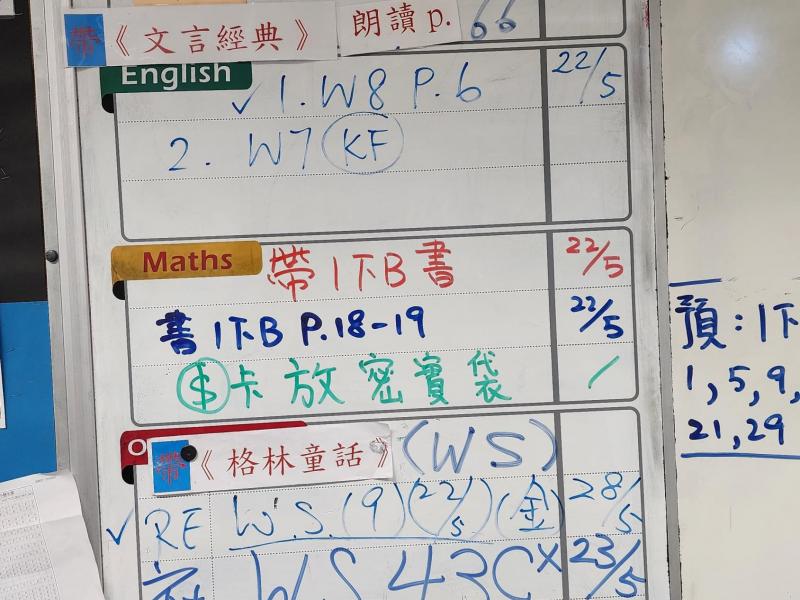 帶《文言經典》 朗讀 p. 66
English
✓ 1. W8 P.6 22/5
2. W7 KF
Maths 帶 1下B 書 22/5
書 1下B P.18-19 22/5
$ 卡 放 密實袋 /
帶《格林童話》 (WS)
✓ RE W.S. (9) (22/5) (金) 28/5
WS 43C× 23/5
預：1下
1, 5, 9,
21, 29